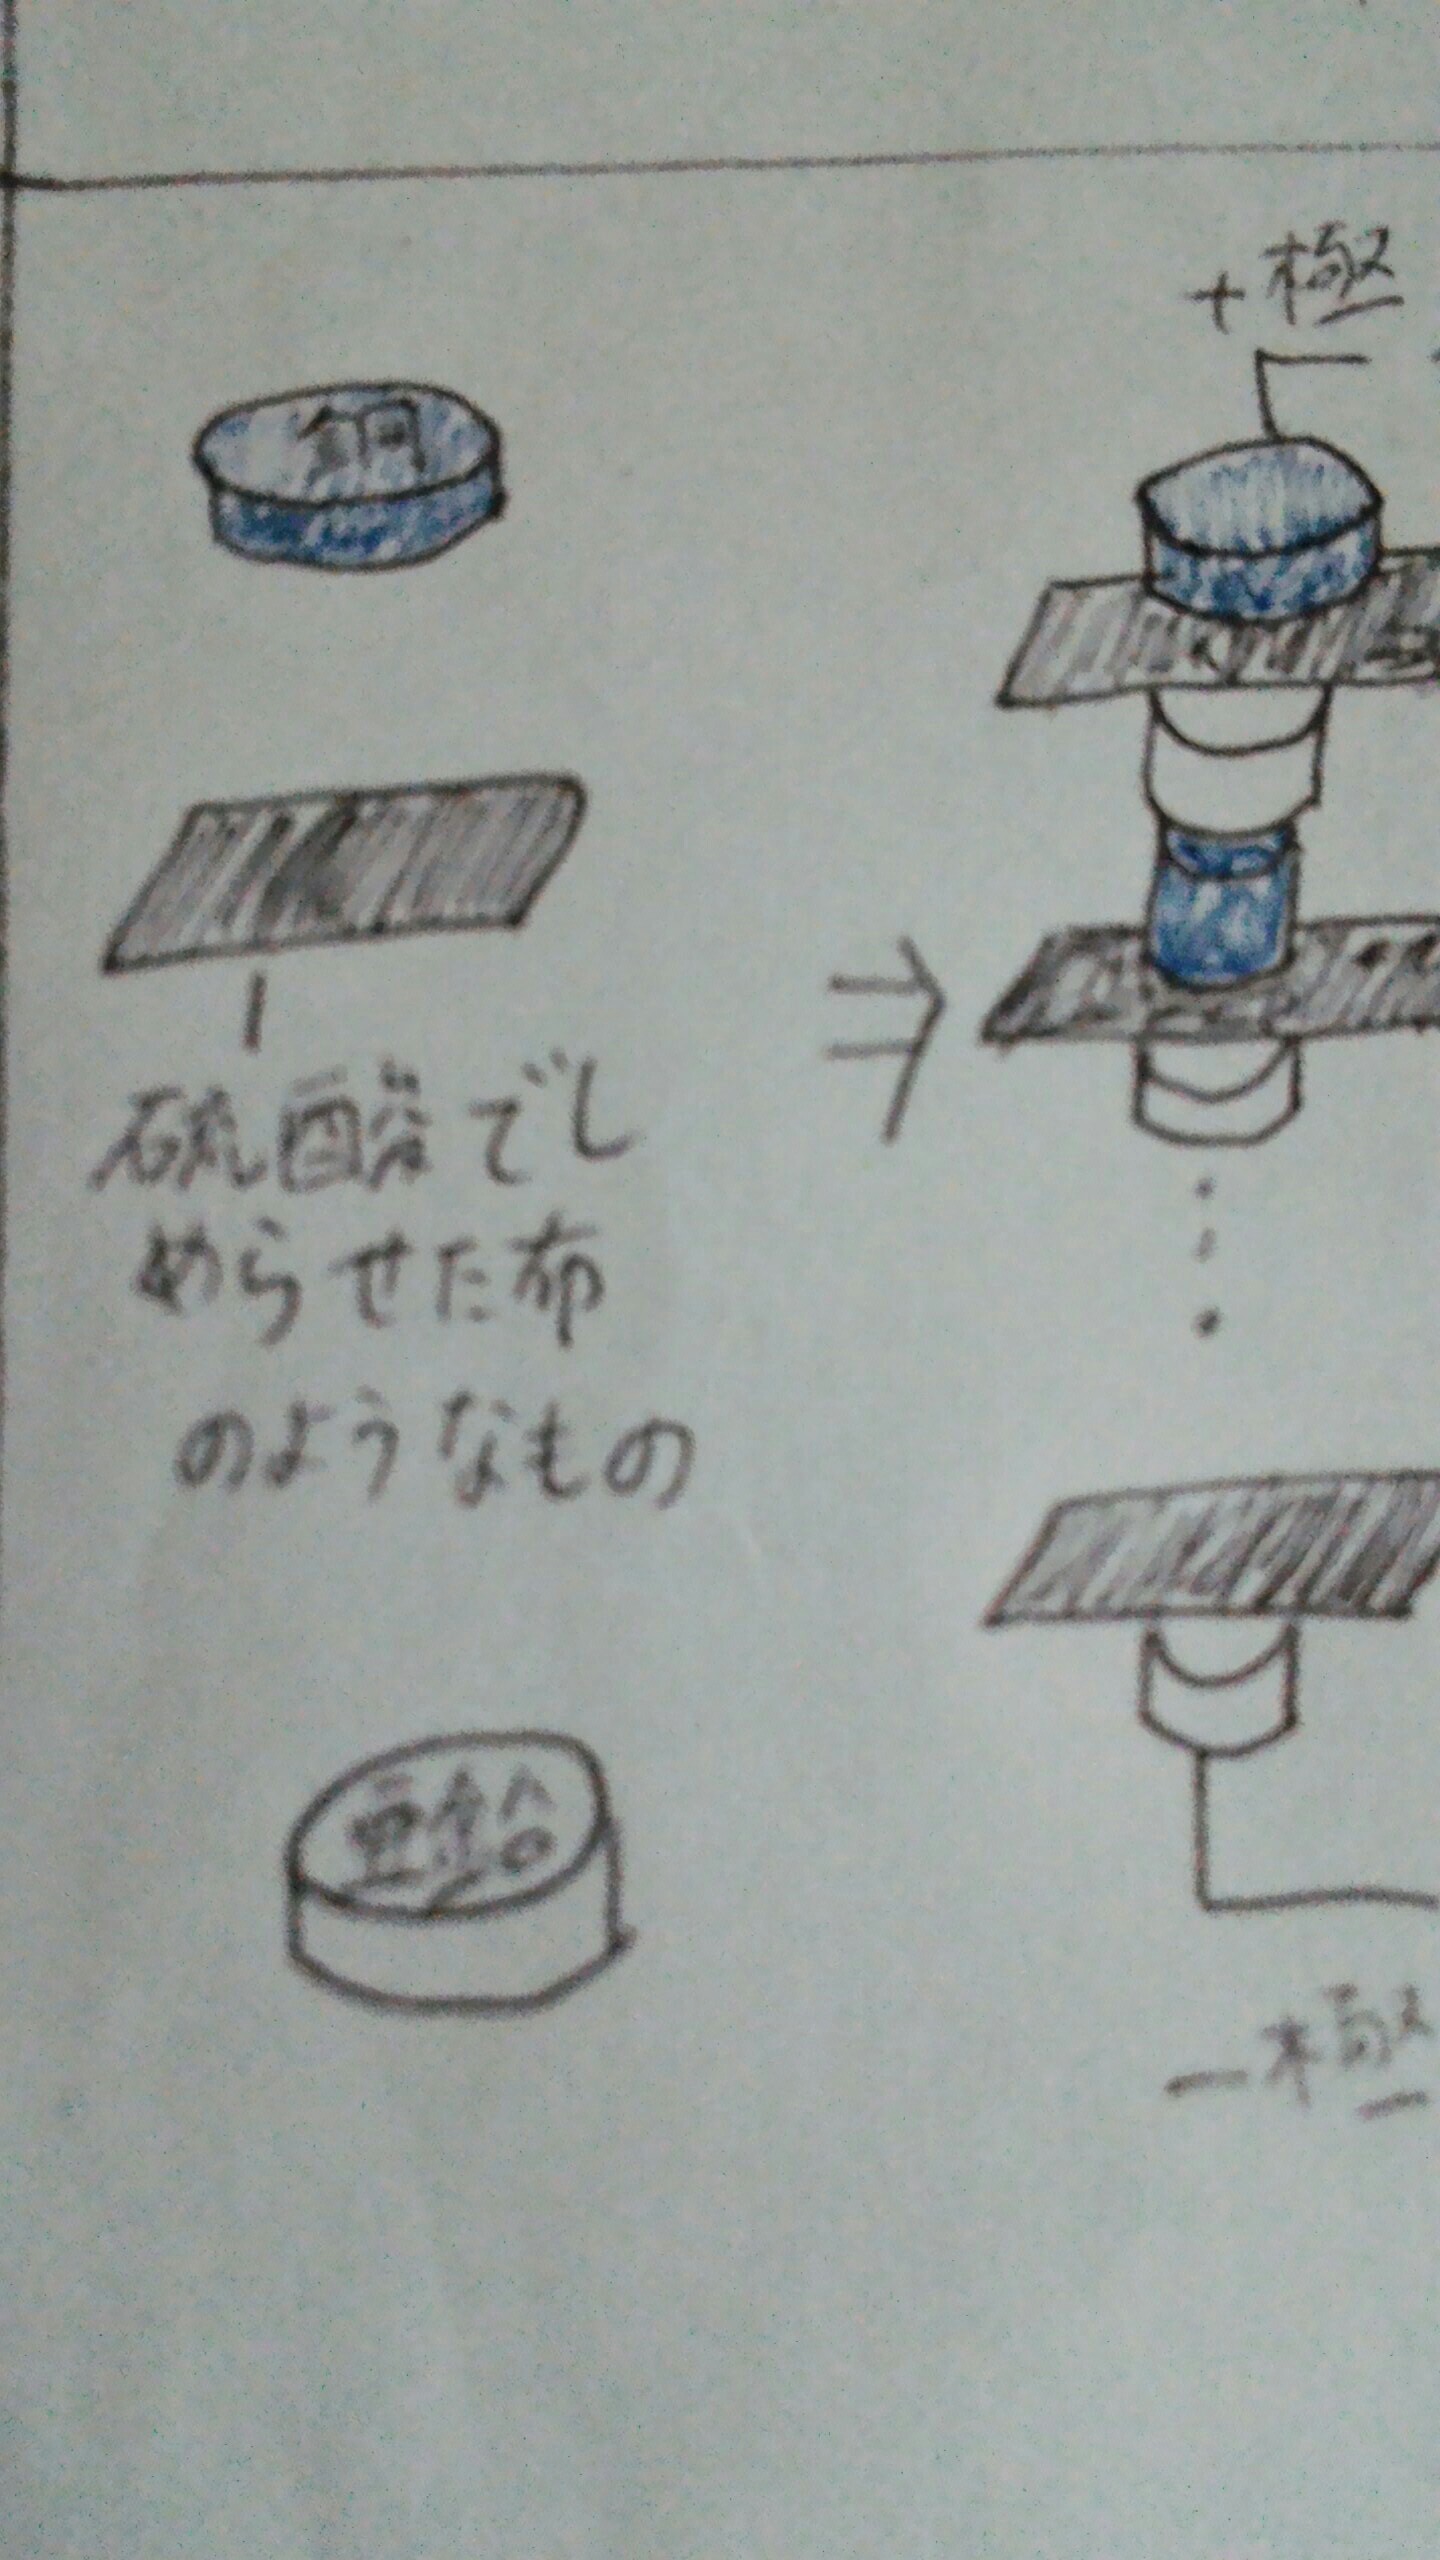 銅
硫酸でし
めらせた布
のようなもの
亜鉛
+極
-極